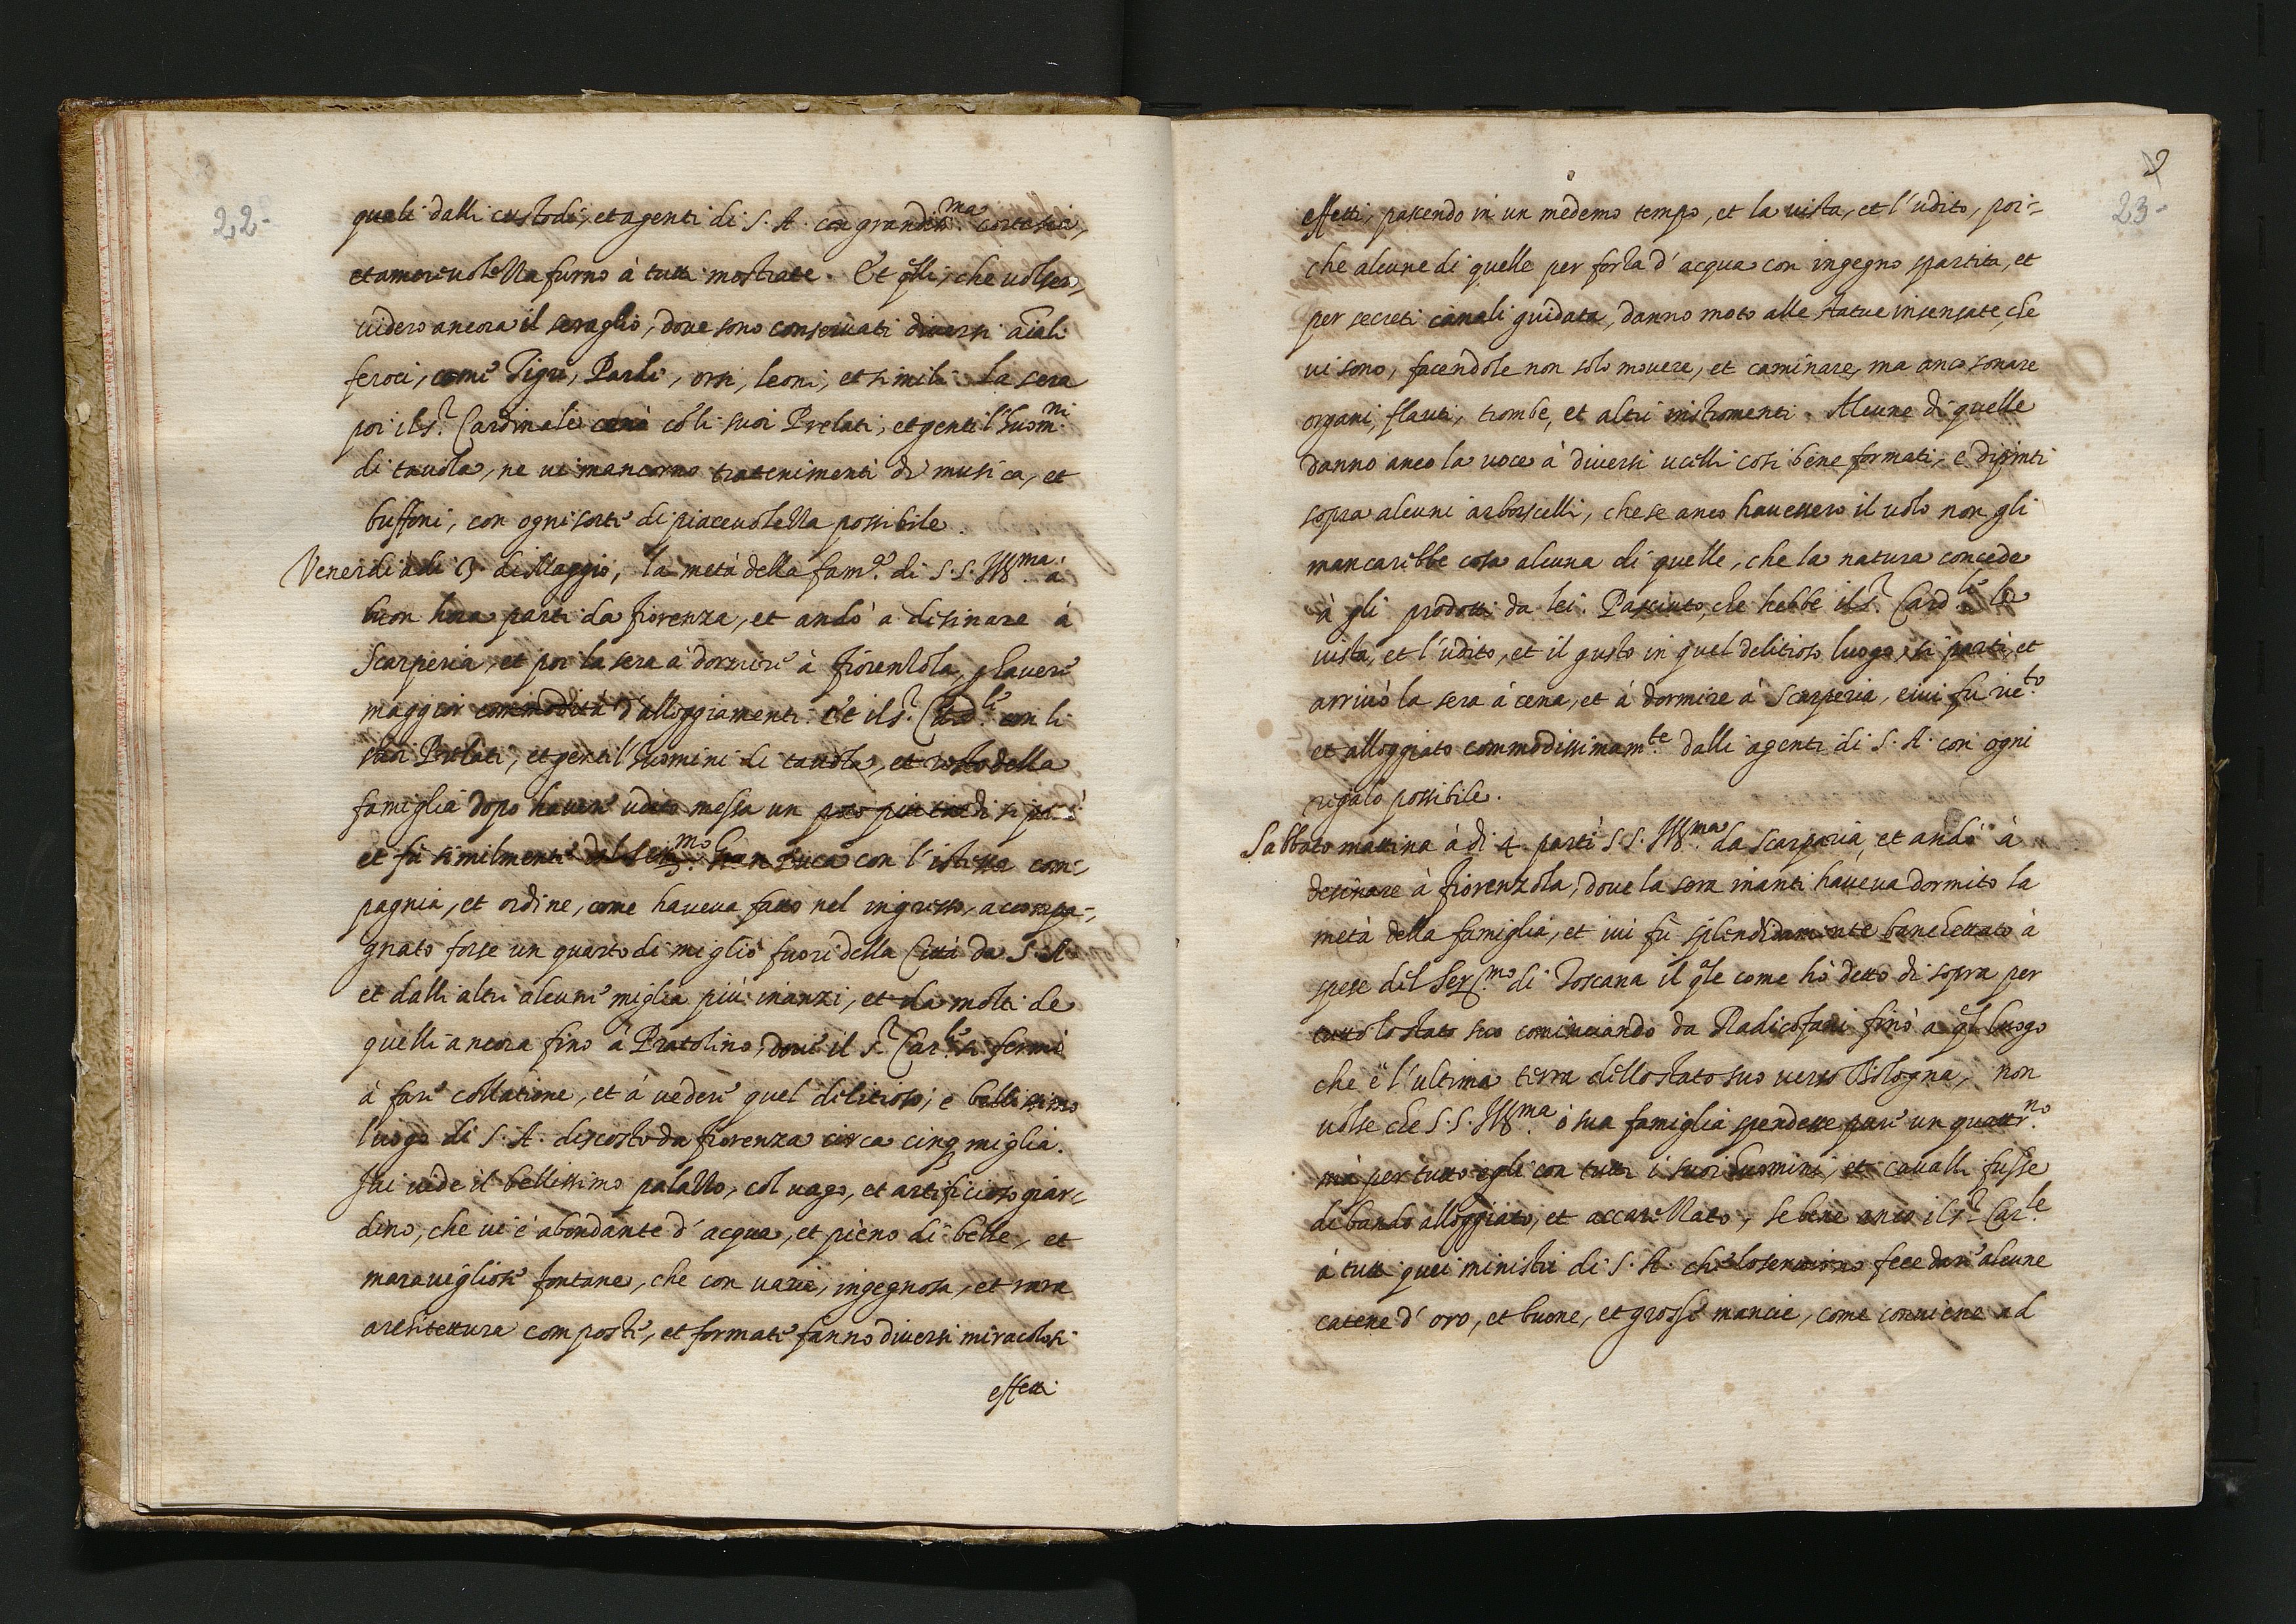 22-
quali dalli custodi, et agenti di S. A. con grandiss.ma cortesia,
et amorevolezza furno à tutti mostrate. Et q̃lli, che volsero,
videro ancora il seraglio, dove sono conservati diversi aĩali
feroci, come Tigri, Pardi, orsi, leoni, et simili. La sera
poi il s.r Cardinale cenò cõ li suoi Prelati, et gentil'huom.ni
di tavola, ne vi mancorno trattenimenti di musica, et
buffoni, con ogni sorte di piacevolezza possibile.
Venerdi à di 3. di Maggio, la metà della fam.a di S. S. Ill.ma à
buon hora parti da Fiorenza, et andò a disinare à
Scarperia, et poi la sera à dormire à Fiorenzola, p̱ haver
maggior commodità d'alloggiamenti. Et il s.r Card.le con li
suoi Prelati, et gentil'huomini di tavola, et resto della
famiglia dopo haver udito messa un poco più tardi si partì
et fù similmente dal Ser.mo Gran Duca con l'istessa com-
pagnia, et ordine, come haveva fatto nel ingresso, accompa-
gnato forse un quarto di miglio fuori della Città da S. A.
et dalli altri alcune miglia più inanzi, et da molti de
quelli ancora fino à Pratolino, dove il s.r Car.le si fermò
à fare collatione, et à vedere quel delitioso, e bellissimo
luogo di S. A. discosto da Fiorenza circa cinq; miglia.
Ivi vide il bellissimo palazzo, col vago, et artificioso giar-
dino, che vi è abondante d'acqua, et pieno di belle, et
maravigliose fontane, che con varia, ingegnosa, et rara
architettura composte, et formate fanno diversi miracolosi
effetti
9
23-
effetti, pascendo in un medemo tempo, et la vista, et l'udito, poi-
che alcune di quelle per forza d'acqua con ingegno spartita, et
per secreti canali guidata, danno moto alle statue insensate, che
vi sono, facendole non solo movere, et caminare, ma anco sonare
organi, flauti, trombe, et altri instromenti. Alcune di quelle
danno anco la voce à diversi ucelli cosi bene formati, e dipinti
sopra alcuni arboscelli, che se anco havessero il volo non gli
mancarebbe cosa alcuna di quelle, che la natura concede
à gli prodotti da lei. Pasciuto, che hebbe il s.r Card.le la
vista, et l'udito, et il gusto in quel delitioso luogo, si partì, et
arrivò la sera à cena, et à dormire à Scarperia, e ivi fu ric.to
et alloggiato commodissimam.te dalli agenti di S. A. con ogni
rigalo possibile.
Sabbato mattina à di 4. partì S S. Ill.ma da Scarparia, et andò à
desinare à Fiorenzola, dove la sera inanti haveva dormito la
metà della famiglia, et ivi fù splendidamente banchettato à
spese del Ser.mo di Toscana il q̃le come hò detto di sopra per
tutto lo stato suo cominciando da Radicofani fino a q̃l luogo
che è l'ultima terra dello stato suo verso Bologna, non
volse che S. S. Ill.ma ò sua famiglia spendesse pure un quattr.no
mà per tutto egli con tutti i suoi huomini, et cavalli fusse
di bando alloggiato, et accarezzato, se bene anco il s.r Car.le
à tutti quei ministri di S. A. che lo servirno fece dare alcune
catene d'oro, et buone, et grosse mancie, come conviene ad